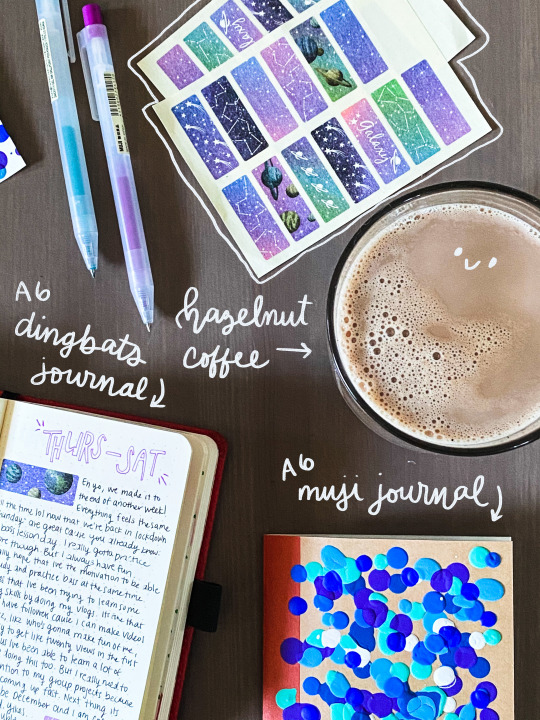 galaxy
Galaxy
MUJI 無印良品
A6
dingbats
journal
hazelnut
coffee →
A6
muji journal
THURS-SAT
Eh yo, we made it to
the end of another week!
Everything feels the same
all the time lol now that we're back in lockdown
Sunday: are great cause you already know:
bass lessonday. I really gotta practice
more though. But I always have fun.
hope that I've the motivation to be able
study and practice bass at the same time.
is that I've been trying to learn some
skills by doing my vlogs. Its one that
have followers cause I can make videos
like, who's gonna make fun of me,
to get like twenty views in the first
doing this too. But I really need to
I've been able to learn a lot of
attention to my group projects because
coming up fast. Next thing its
be December and I am
yikes.